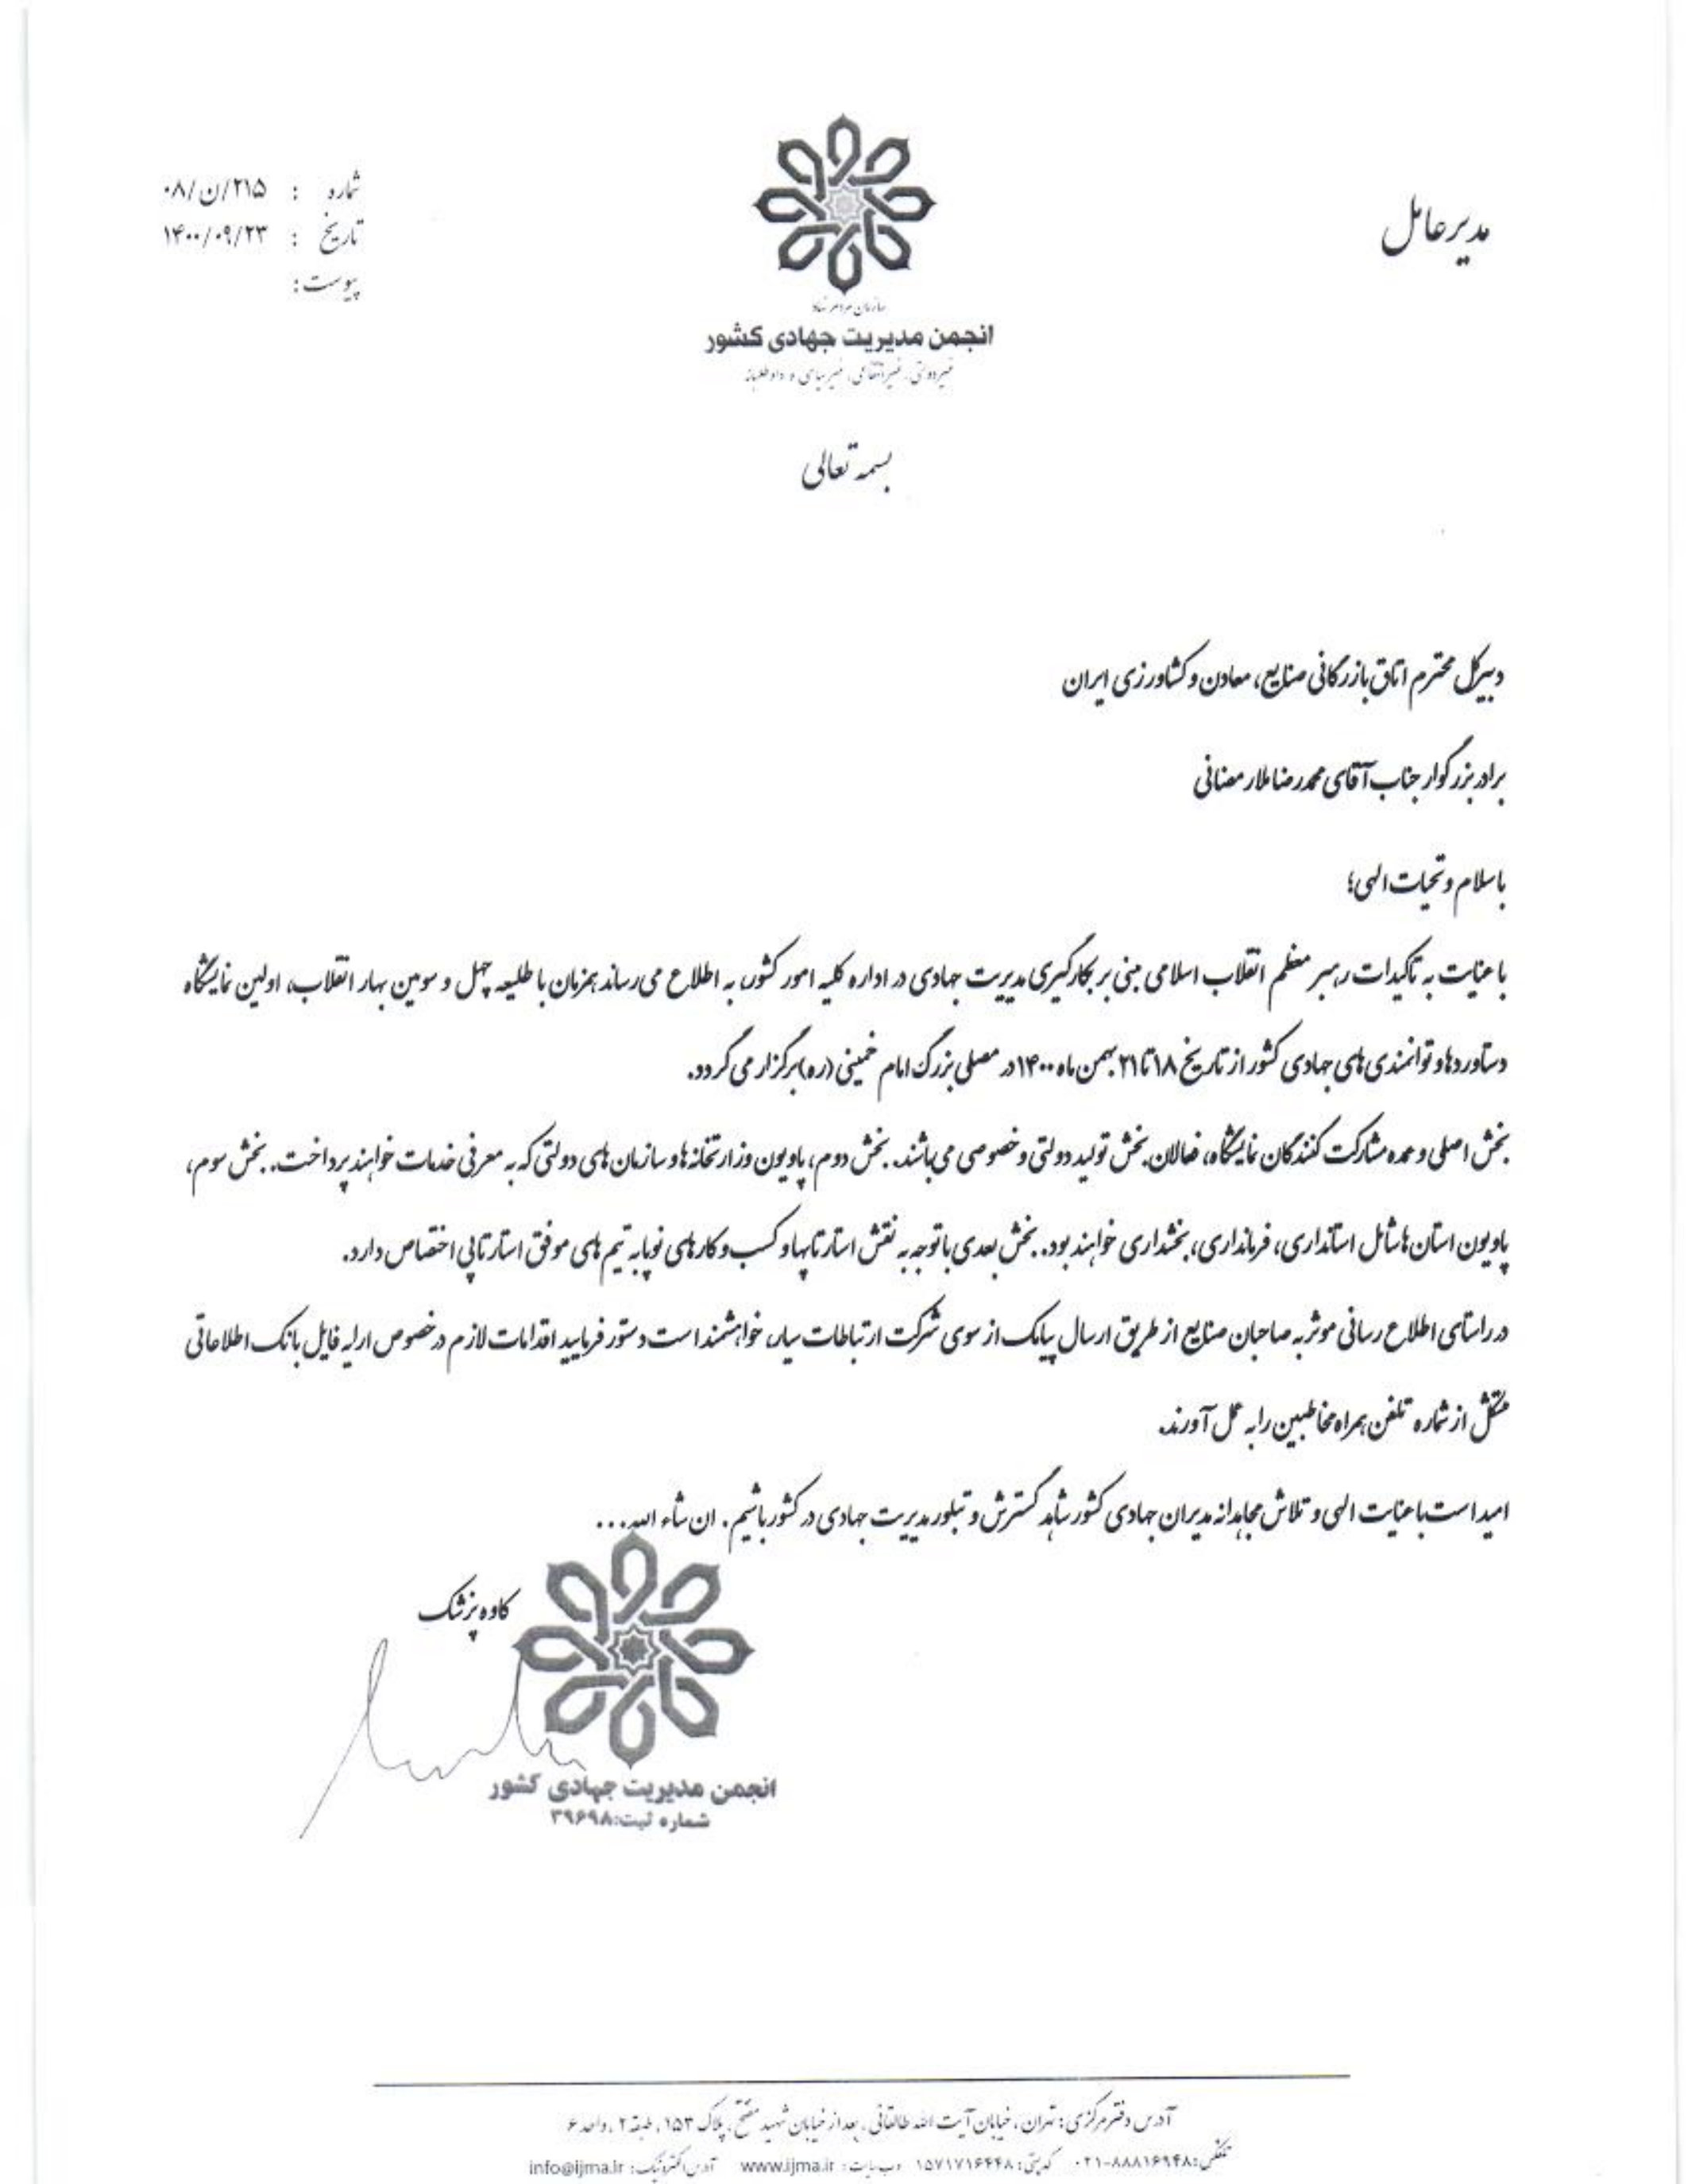 مدیرعامل
شماره : ۲۱۵/ن/۰۸
تاریخ : ۱۴۰۰/۰۹/۲۳
پیوست:
سازمان مردم نهاد
انجمن مدیریت جهادی کشور
غیردولتی، غیرانتفاعی، غیرسیاسی و داوطلبانه
بسمه تعالی
دبیرکل محترم اتاق بازرگانی صنایع، معادن و کشاورزی ایران
برادر بزرگوار جناب آقای محمدرضا ملارمضانی
با سلام و تحیات الهی؛
با عنایت به تاکیدات رهبر معظم انقلاب اسلامی مبنی بر بکارگیری مدیریت جهادی در اداره کلیه امور کشور، به اطلاع می رساند همزمان با طلیعه چهل و سومین بهار انقلاب، اولین نمایشگاه
دستاوردها و توانمندی های جهادی کشور از تاریخ ۱۸ تا ۲۱ بهمن ماه ۱۴۰۰ در مصلی بزرگ امام خمینی (ره) برگزار می گردد.
بخش اصلی و عمده مشارکت کنندگان نمایشگاه، فعالان بخش تولید دولتی و خصوصی می باشند. بخش دوم، پاویون وزارتخانه ها و سازمان های دولتی که به معرفی خدمات خواهند پرداخت. بخش سوم،
پاویون استان ها شامل استانداری، فرمانداری، بخشداری خواهند بود. بخش بعدی با توجه به نقش استارتاپها و کسب و کارهای نوپا به تیم های موفق استارتاپی اختصاص دارد.
در راستای اطلاع رسانی موثر به صاحبان صنایع از طریق ارسال پیامک از سوی شرکت ارتباطات سیار، خواهشمند است دستور فرمایید اقدامات لازم در خصوص ارایه فایل بانک اطلاعاتی
متشکل از شماره تلفن همراه مخاطبین را به عمل آورند.
امید است با عنایت الهی و تلاش مجاهدانه مدیران جهادی کشور شاهد گسترش و تبلور مدیریت جهادی در کشور باشیم. ان شاء الله...
کاوه پزشک
انجمن مدیریت جهادی کشور
شماره ثبت:۳۹۶۹۸
آدرس دفتر مرکزی: تهران، خیابان آیت الله طالقانی، بعد از خیابان شهید مفتح، پلاک ۱۵۳، طبقه ۲، واحد ۶
تلفکس: ۰۲۱-۸۸۸۱۶۹۴۸ کدپستی: ۱۵۷۱۷۱۶۴۴۸ وب سایت: www.ijma.ir آدرس الکترونیک: info@ijma.ir